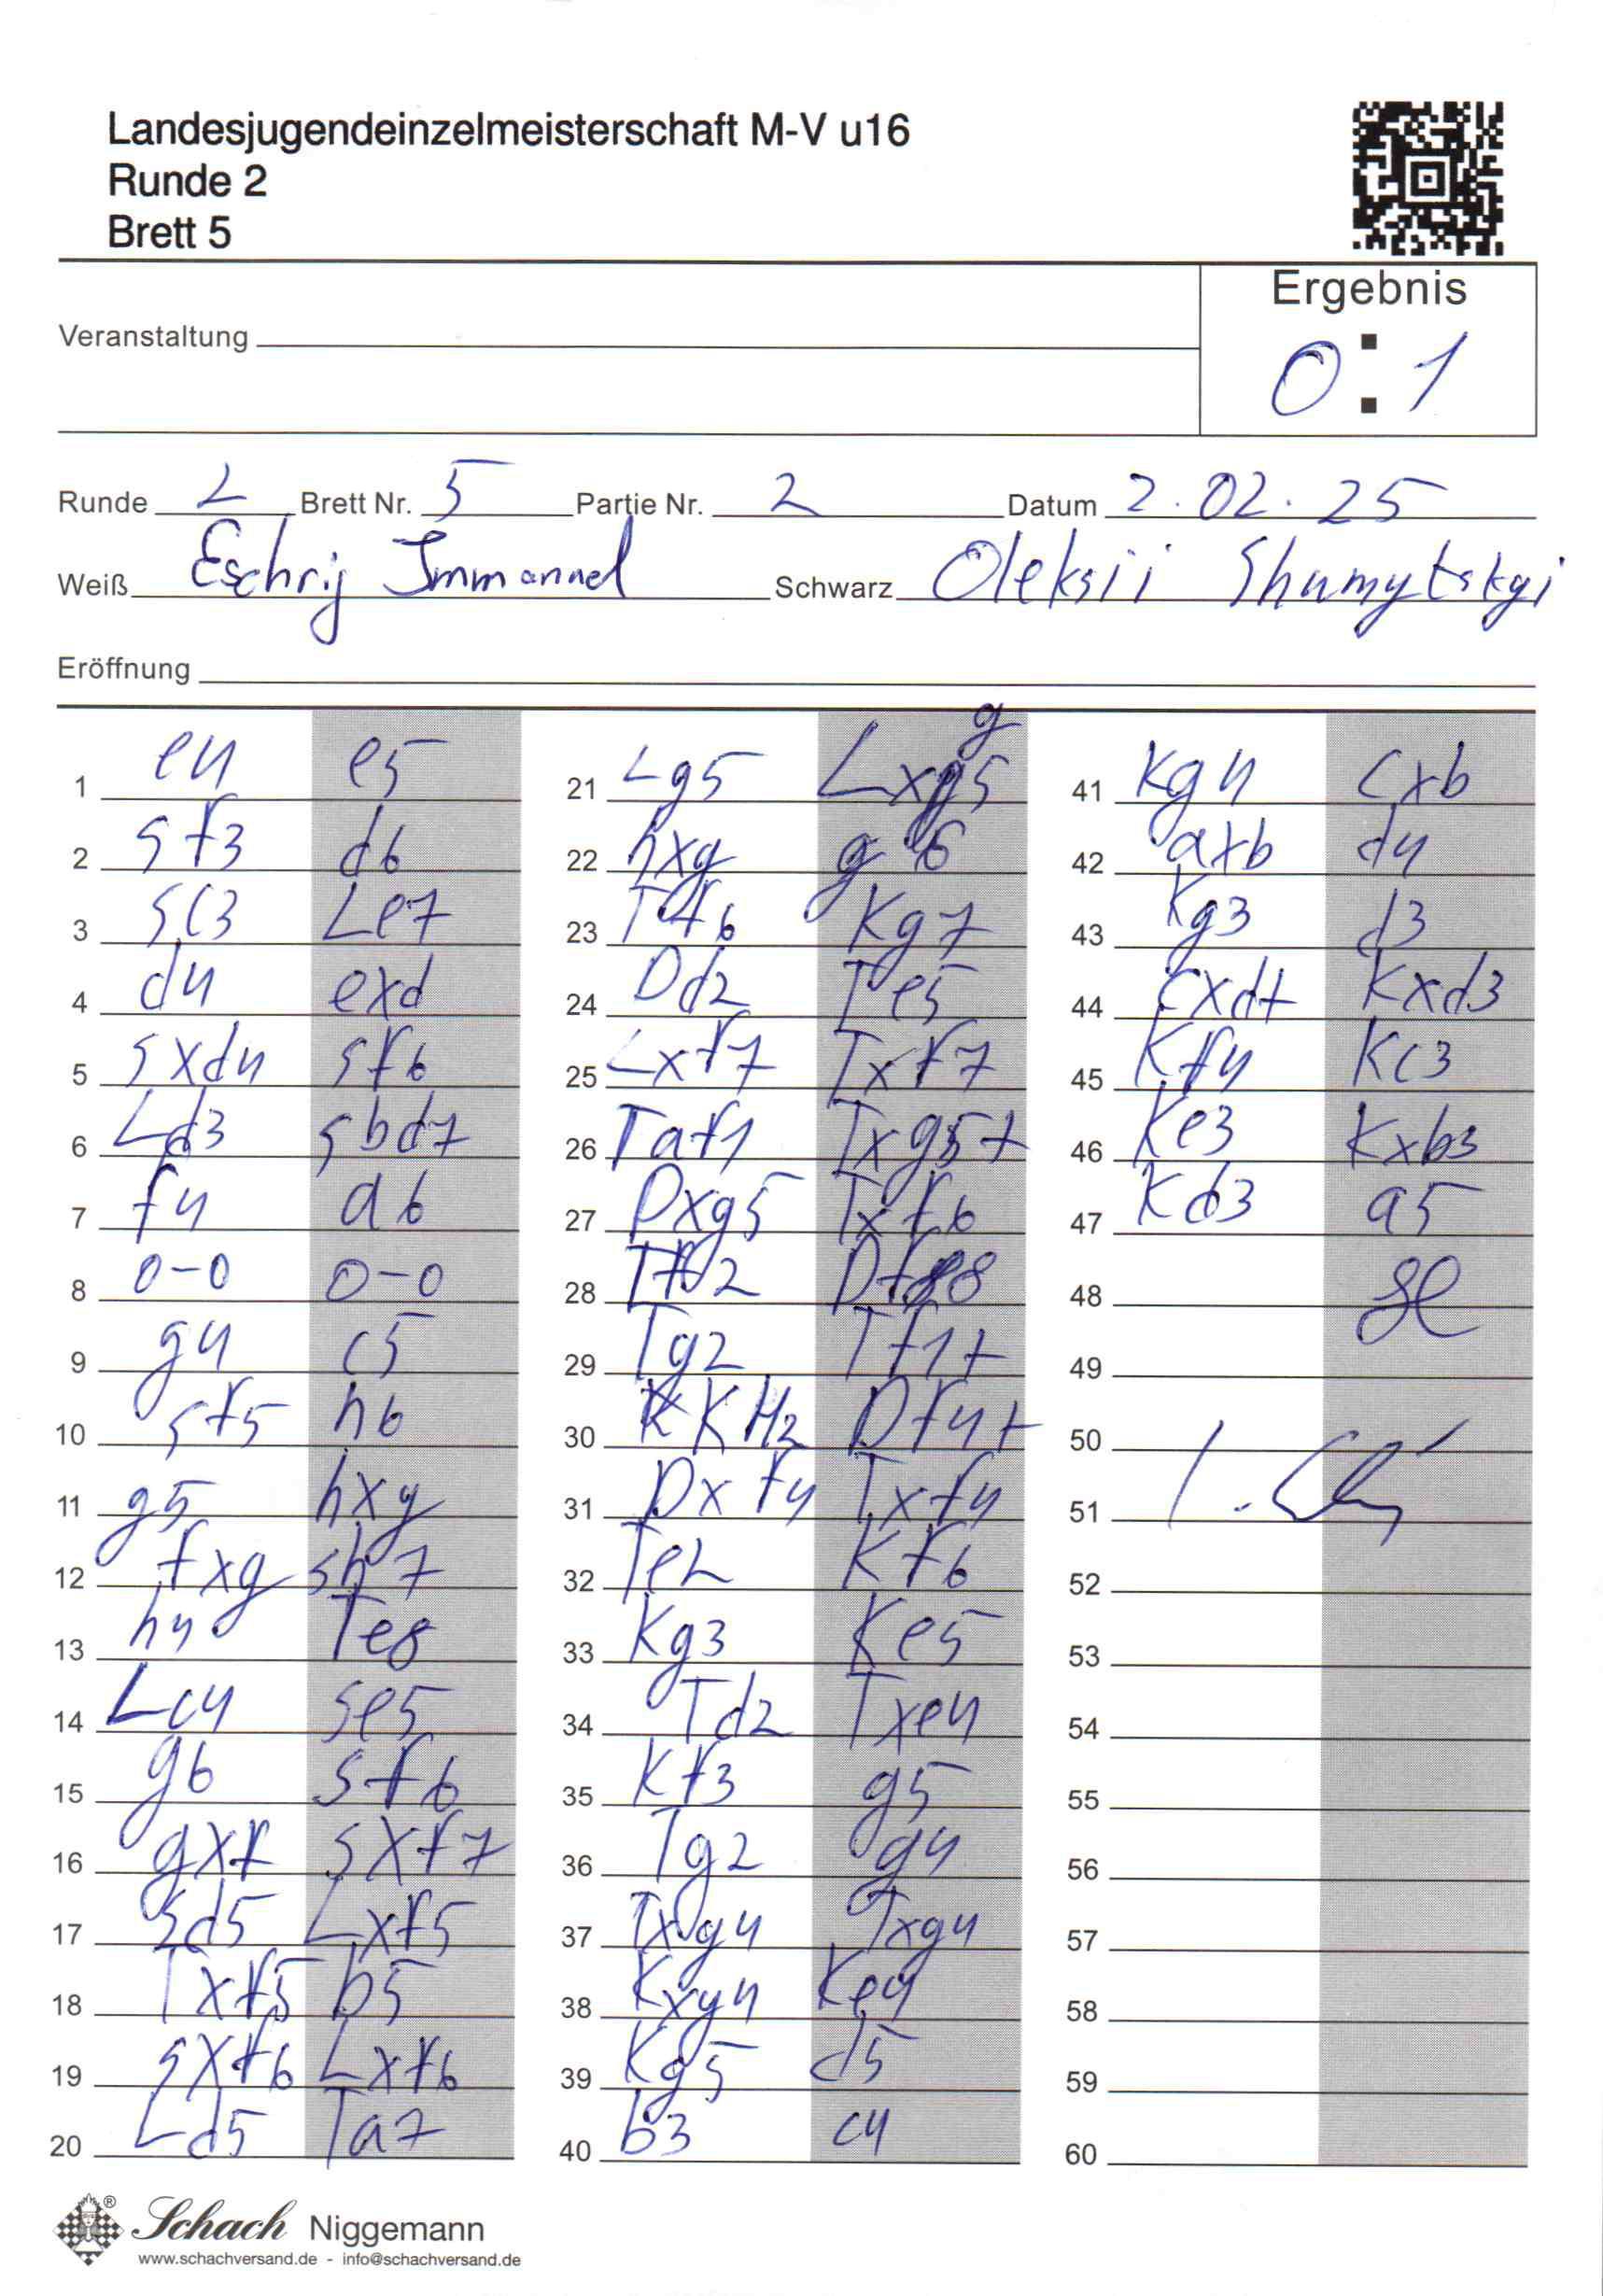 Landesjugendeinzelmeisterschaft M-V u16
Runde 2
Brett 5
Ergebnis
Veranstaltung
0:1
Runde 2 Brett Nr. 5 Partie Nr. 2 Datum 2.02.25
Weiß Eschrig Immanuel Schwarz Oleksii Shumytskyi
Eröffnung
1 e4 e5
2 Sf3 d6
3 Sc3 Le7
4 d4 exd
5 Sxd4 Sf6
6 Ld3 Sbd7
7 f4 a6
8 0-0 0-0
9 g4 c5
10 Sf5 h6
11 g5 hxg
12 fxg Sh7
13 h4 Te8
14 Lc4 Se5
15 g6 Sf6
16 gxf Sxf7
17 Sd5 Lxf5
18 Txf5 b5
19 Sxf6 Lxf6
20 Ld5 Ta7
21 Lg5 Lxg5
22 hxg g6
23 Tf6 Kg7
24 Dd2 Te5
25 Lxf7 Txf7
26 Taf1 Txg5+
27 Dxg5 Txf6
28 Tf2 Df8
29 Tg2 Tf1+
30 KH2 Df4+
31 Dxf4 Txf4
32 Te2 Kf6
33 Kg3 Ke5
34 Td2 Txe4
35 Kf3 g5
36 Tg2 g4
37 Txg4 Txg4
38 Kxg4 Ke4
39 Kg5 d5
40 b3 c4
41 Kg4 cxb
42 axb d4
43 Kg3 d3
44 cxd+ Kxd3
45 Kf4 Kc3
46 Ke3 Kxb3
47 Kd3 a5
48
49
50
51
52
53
54
55
56
57
58
59
60
Schach Niggemann
www.schachversand.de - info@schachversand.de